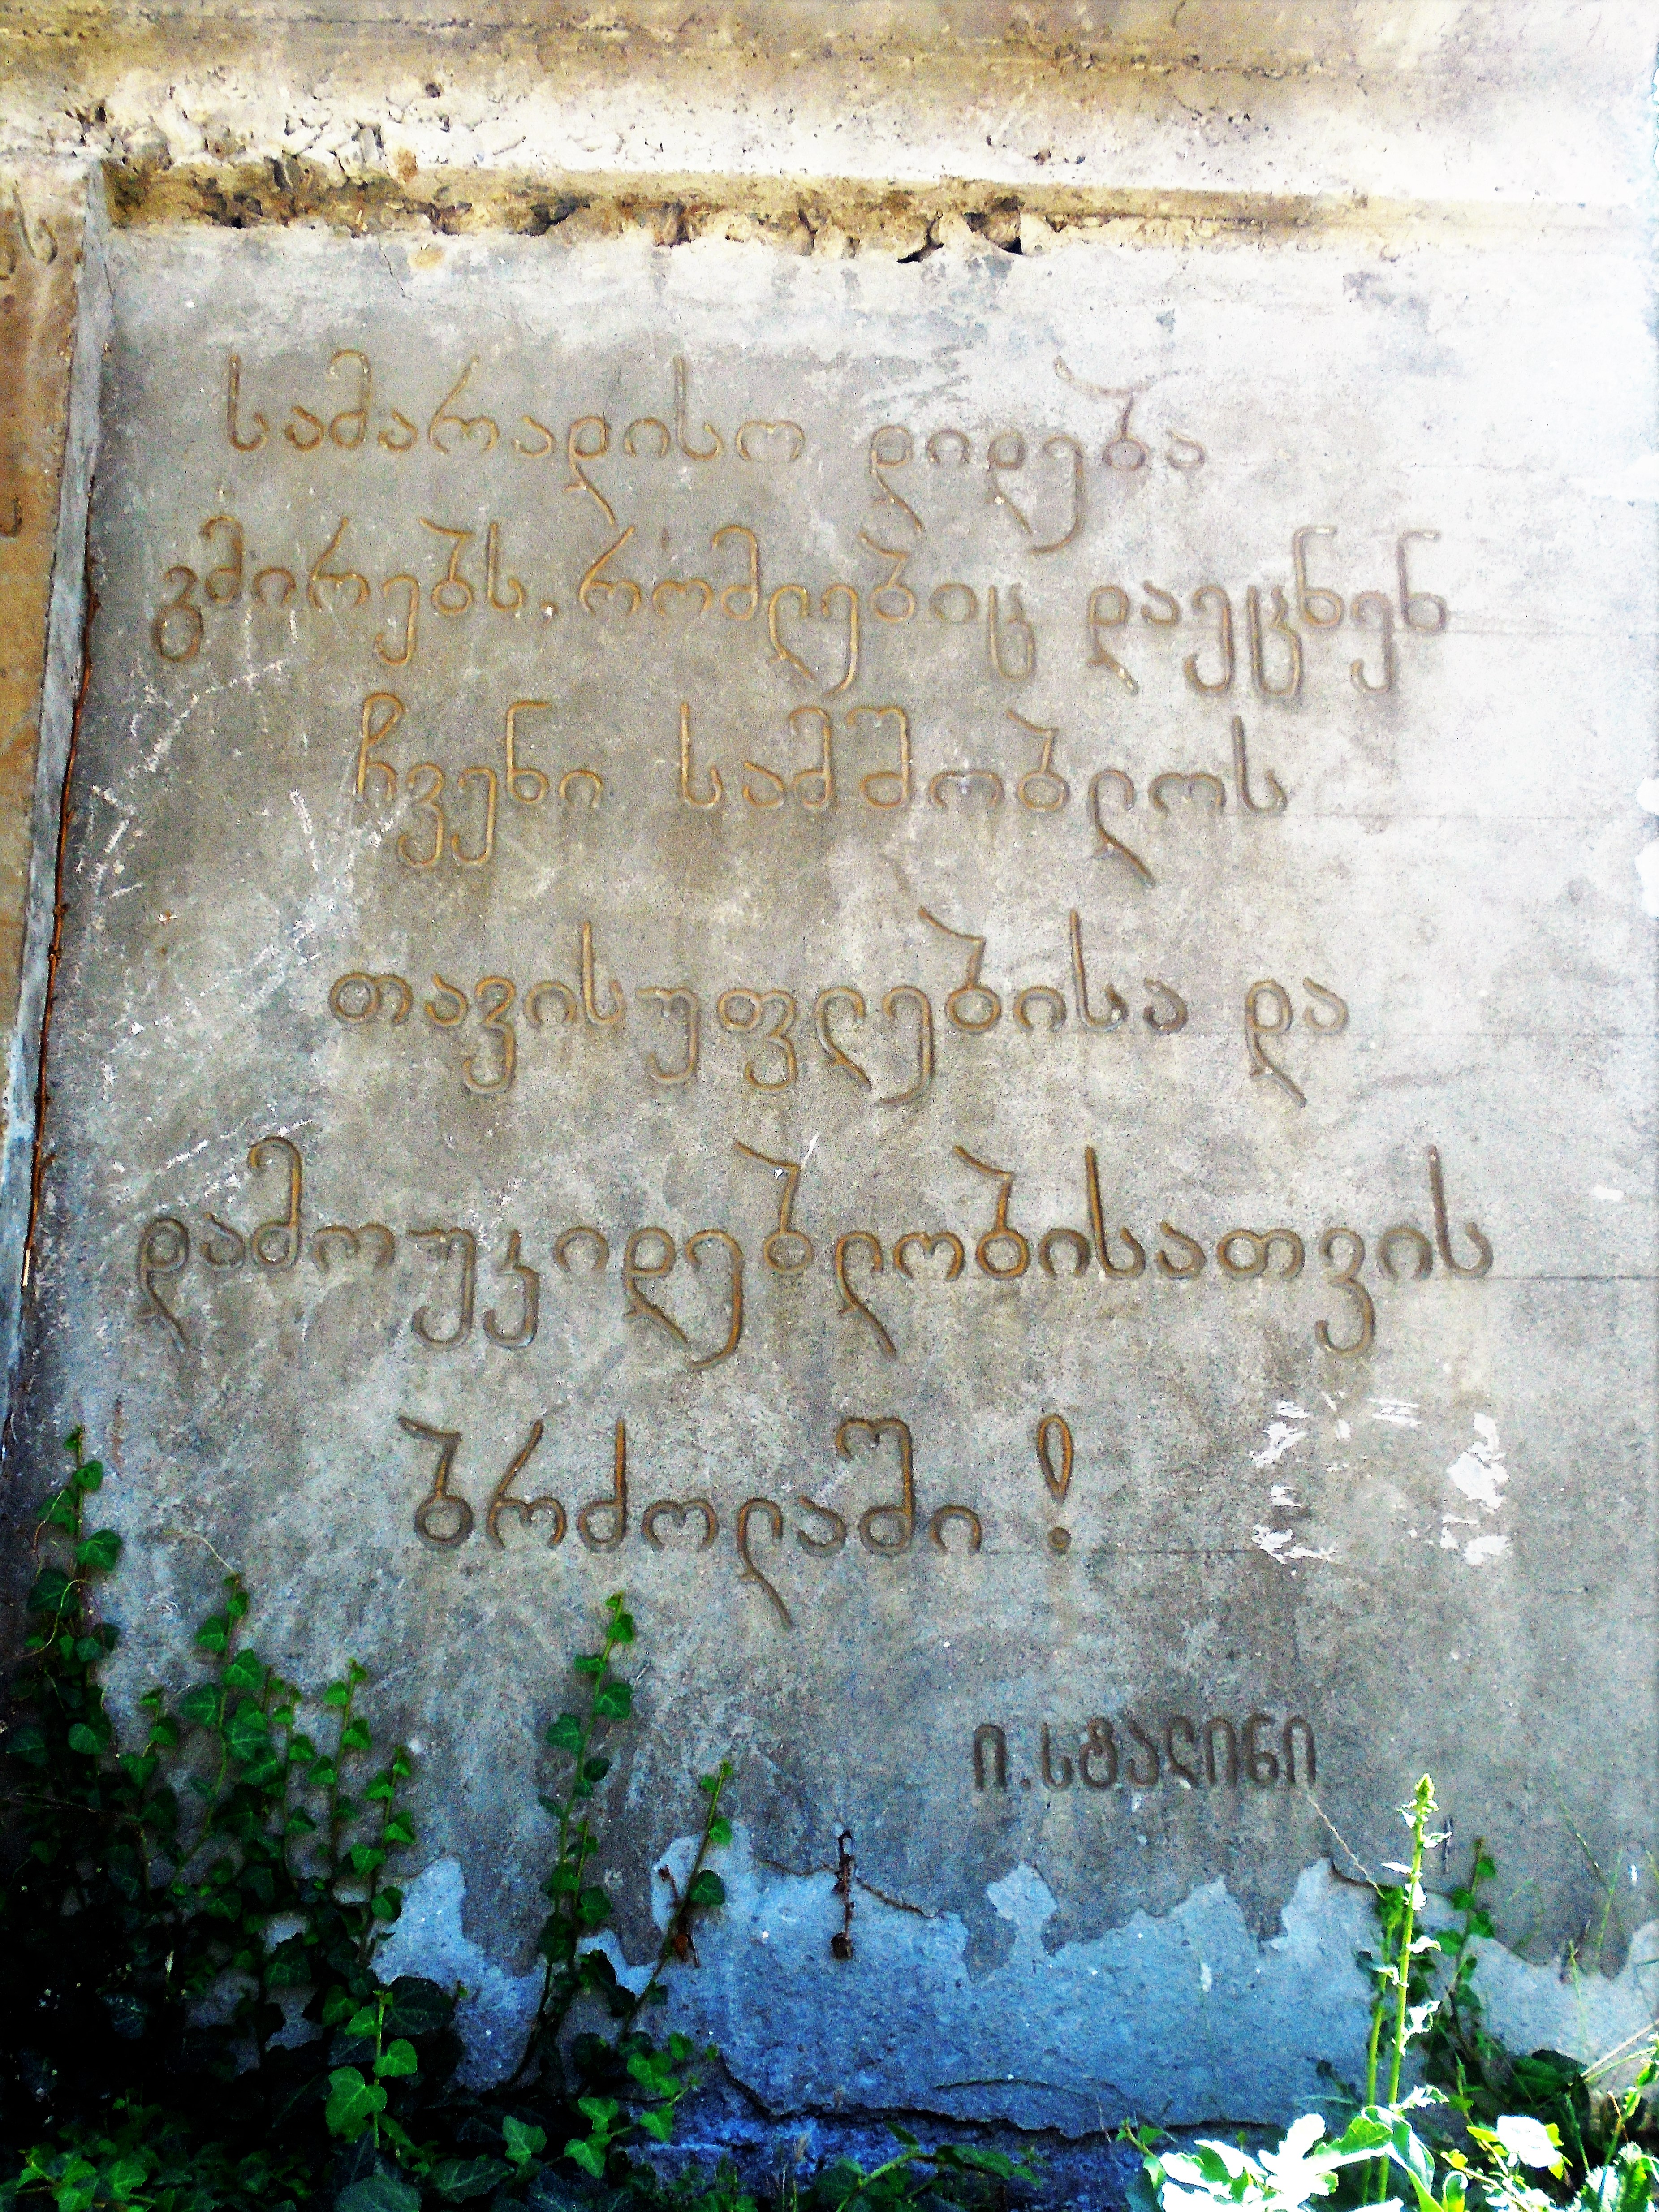 სამარადისო დიდება
გმირებს, რომლებიც დაეცნენ
ჩვენი სამშობლოს
თავისუფლებისა და
დამოუკიდებლობისათვის
ბრძოლაში !
ი. სტალინი